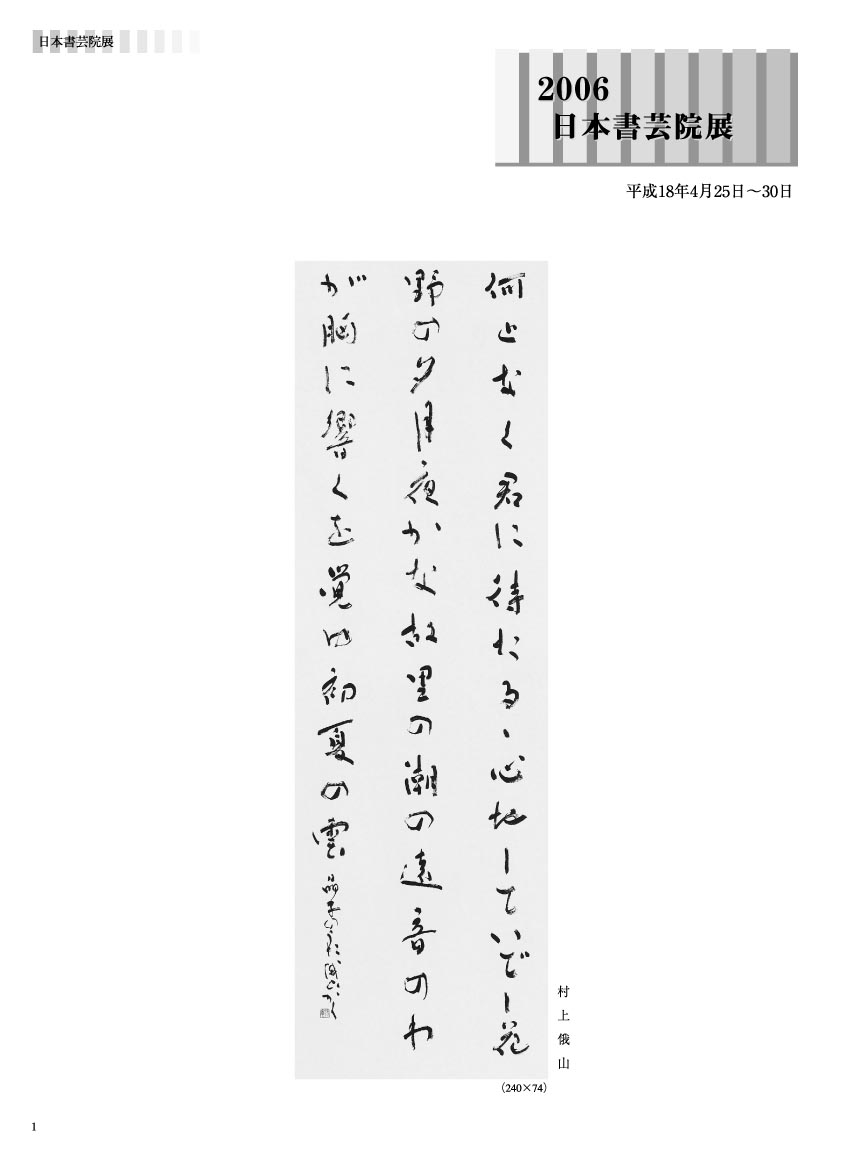 日本書芸院展
2006
日本書芸院展
平成18年4月25日～30日
何となく君に待たるゝ心地していでし花
野の夕月夜かな故里の潮の遠音のわ
が胸に響くを覚ゆ初夏の雲
晶子のうた 俄山かく
村上俄山
(240×74)
1